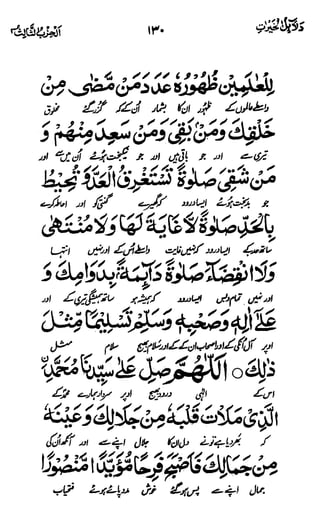 دلائل الخیرات ١٣٠ الحزب الثالث
لِلْعٰلَمِيْنَ ظُهُوْرُهٗ عَدَدَ مَنْ مَّضٰى مِنْ
واسطے عالموں کے ظہور ان کا بشمار ان کے کہ گزر گئے مخلوق
خَلْقِكَ وَمَنْ بَقِيَ وَمَنْ سَعِدَ مِنْهُمْ وَ
تیری سے اور جو باقی ہیں اور جو نیکبخت ہوئے ان میں سے اور
مَنْ شَقِيَ صَلٰوةً تَسْتَغْرِقُ الْعَدَّ وَتُحِيْطُ
جو بدبخت ہوئے ایسا درود کہ گھیرے گنتی کو اور احاطہ کرے
بِالْحَدِّ صَلٰوةً لَا غَايَةَ لَهَا وَلَا مُنْتَهٰى
ساتھ حد کے ایسا درود کہ نہیں غایت واسطے اس کے اور نہیں انتہا
وَلَا انْقِضَاءَ صَلٰوةً دَائِمَةً بِدَوَامِكَ وَ
اور نہیں تمام ہونا ایسا درود کہ ہمیشہ ہو ساتھ ہمیشگی تیری کے اور
عَلٰى اٰلِهٖ وَصَحْبِهٖ وَسَلِّمْ تَسْلِيْمًا مِّثْلَ
اوپر آل انکی کے اور اصحاب ان کے کے اور سلام بھیج سلام مثل
ذٰلِكَ ○ اَللّٰهُمَّ صَلِّ عَلٰى سَيِّدِنَا مُحَمَّدِ
اس کے الٰہی درود بھیج اوپر سردار ہمارے محمد کے
الَّذِيْ مَلَأْتَ قَلْبَهٗ مِنْ جَلَالِكَ وَعَيْنَهٗ
کہ بھر دیا ہے تو نے دل ان کا جلال اپنے سے اور آنکھ ان کی
مِنْ جَمَالِكَ فَاَصْبَحَ فَرِحًا مُّؤَيَّدًا مَّنْصُوْرًا
جمال اپنے سے پس ہو گئے خوش مدد پائے ہوئے فتحیاب